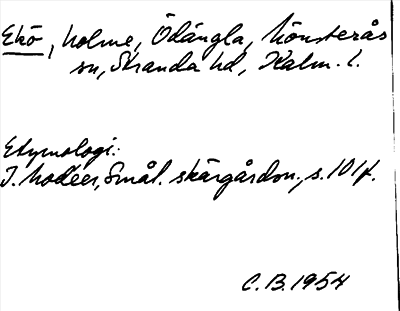 Ekö, holme, Ödängla, Mönsterås
sn, Stranda hd, Kalm. l.
Etymologi:
I. Modéer, Smål. skärgårdsn., s. 101f.
C.B. 1954